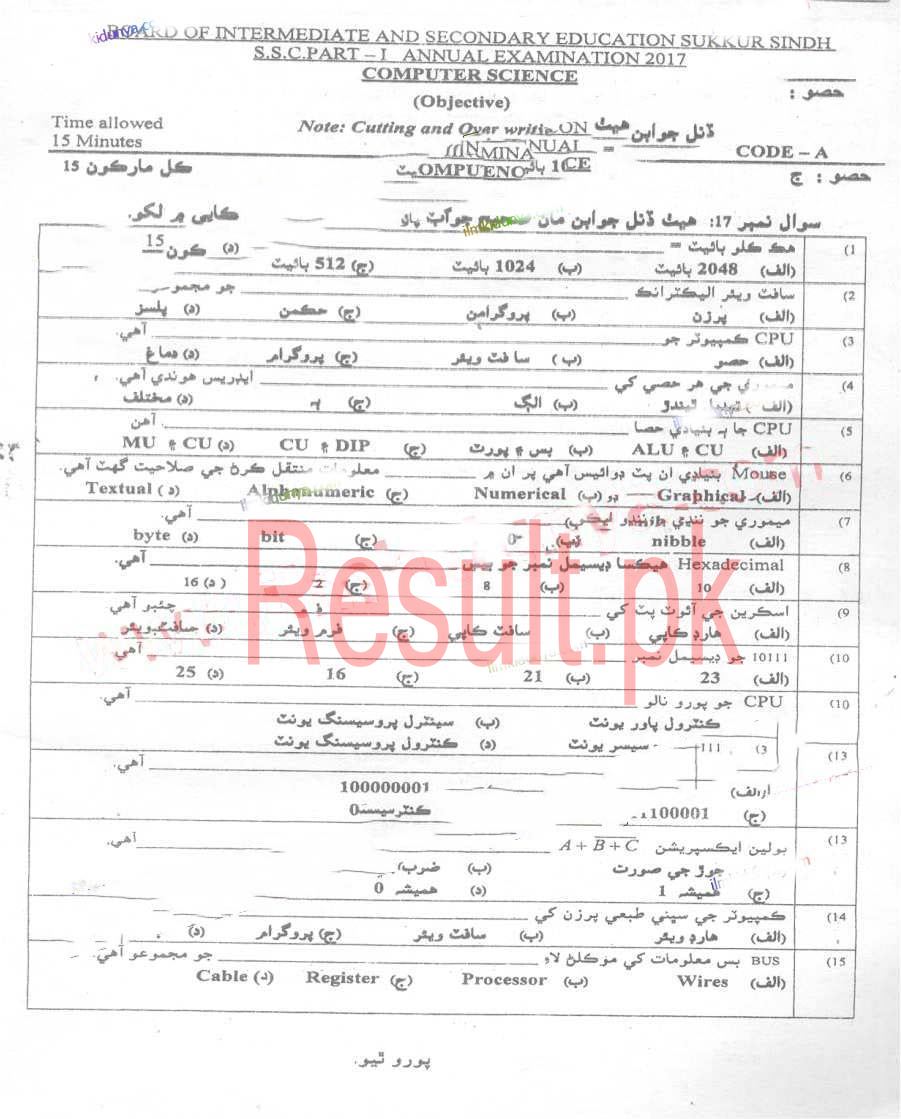 BOARD OF INTERMEDIATE AND SECONDARY EDUCATION SUKKUR SINDH
S.S.C.PART – I ANNUAL EXAMINATION 2017
COMPUTER SCIENCE
(Objective)
حصو :
Time allowed
15 Minutes
Note: Cutting and Over
هيٺ ڏنل جوابن
CODE – A
ڪل مارڪون 15
حصو : ج
سوال نمبر 17: هيٺ ڏنل جوابن مان صحيح جواب ڪاپي ۾ لکو.
(1 هڪ ڪلو بائيٽ = ____
(الف) 2048 بائيٽ (ب) 1024 بائيٽ (ج) 512 بائيٽ (د)
(2 سافٽ ويئر اليڪٽرانڪ ____ جو مجموعو
(الف) پرزن (ب) پروگرامن (ج) حڪمن (د) پلسز
(3 CPU ڪمپيوٽر جو ____ آهي.
(الف) حصو (ب) سافٽ ويئر (ج) پروگرام (د) دماغ
(4 ميموري جي هر حصي کي ____ ايڊريس هوندي آهي.
(الف) ٿيندڙ (ب) الڳ (ج) ٻه (د) مختلف
(5 CPU جا ٻه بنيادي حصا ____ آهن
(الف) CU ۽ ALU (ب) بس ۽ پورٽ (ج) DIP ۽ CU (د) CU ۽ MU
(6 Mouse بنيادي ان پٽ ڊوائيس آهي پر ان ۾ ____ معلومات منتقل ڪرڻ جي صلاحيت گهٽ آهي.
(الف) Graphical (ب) Numerical (ج) Alphanumeric (د) Textual
(7 ميموري جو ننڍي ____ آهي.
(الف) nibble (ب) (ج) bit (د) byte
(8 Hexadecimal هيڪسا ڊيسيمل نمبر جو بيس ____ آهي.
(الف) 10 (ب) 8 (ج) 2 (د) 16
(9 اسڪرين جي آئوٽ پٽ کي ____ چئبو آهي
(الف) هارڊ ڪاپي (ب) سافٽ ڪاپي (ج) فرم ويئر (د) سافٽ ويئر
(10 10111 جو ڊيسيمل نمبر ____ آهي
(الف) 23 (ب) 21 (ج) 16 (د) 25
(10 CPU جو پورو نالو ____ آهي.
ڪنٽرول پاور يونٽ (ب) سينٽرل پروسيسنگ يونٽ
يونٽ (د) ڪنٽرول پروسيسنگ يونٽ
(13 ____ آهي.
(الف) 100000001
(ج) 100001
(13 بولين ايڪسپريشن A + B + C ____ آهي.
جوڙ جي صورت (ب) ضرب
(ج) هميشہ 1 (د) هميشہ 0
(14 ڪمپيوٽر جي سڀني طبعي پرزن کي ____
(الف) هارڊ ويئر (ب) سافٽ ويئر (ج) پروگرام (د)
(15 BUS بس معلومات کي موڪلڻ لاءِ ____ جو مجموعو آهي.
(الف) Wires (ب) Processor (ج) Register (د) Cable
پورو ٿيو.
Result.pk